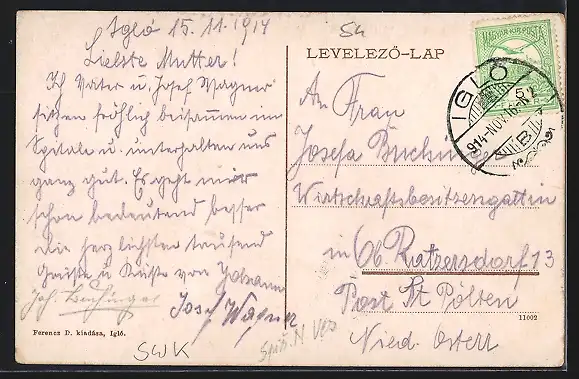 Igló 15.11.1914
Liebste Mutter!
Ich Vater u. Josef Wagner
sitzen fröhlich beisammen im
Spitale u. unterhalten uns
ganz gut. Es geht mir
schon bedeutend besser
die herzlichsten tausend
Grüße u Küsse von Johann
Josef Wagner
Ferencz D. kiadása, Igló.
LEVELEZŐ-LAP
MAGYAR KIR. POSTA
IGLÓ
914-NOV.16-N
B
An Frau
Josefa
Wirtschaftsbesitzersgattin
in Ob. Ratzersdorf 13
Post St Pölten
Nied. Österr
11002
SWK